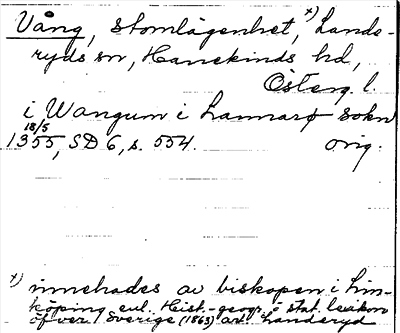 Vång, stomlägenhet, x) Lands-
ryds sn, Hanekinds hd,
Österg. l.
i Wangum i Lannarø sokn
18/5
1355, SD 6, s. 554. orig.
x) innehades av biskopen i Lin-
köping enl. Hist.-geogr. o. stat. lexikon
öfver Sverige (1863) art. Landeryd